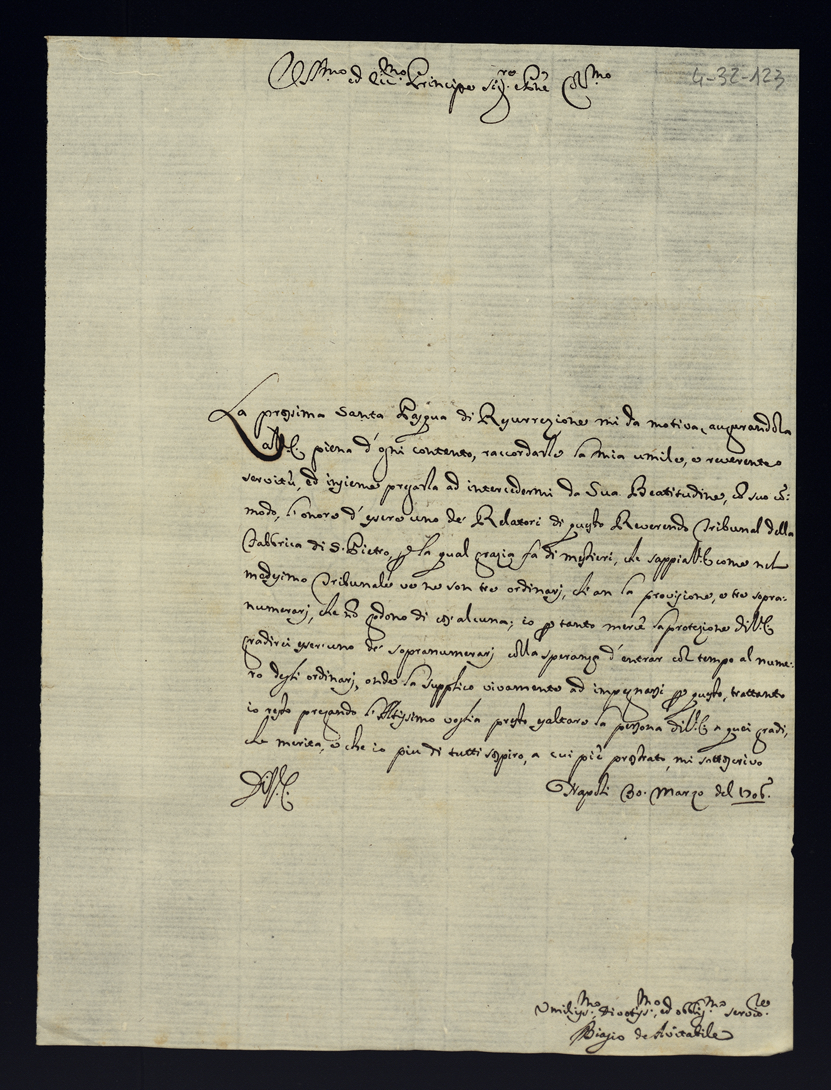 Ill.mo ed Ecc.mo Principe Sig.re e Pñe Col.mo
4-32-123
La prossima Santa Pasqua di Resurrezione mi da motivo, augurandola
a V.E. piena d'ogni contento, raccordarle la mia umile, e reverente
servitù, ed insieme pregarla ad intercedermi da Sua Beatitudine, a suo cõ:
modo, l'onore d'essere uno de' Relatori di questo Reverendo Tribunal della
Fabbrica di S. Pietro, p la qual grazia fa di mestieri, che sappia V.E. come nel
medesimo Tribunale ve ne son tre ordinarj, ch'an la provisione, e tre sopra:
numerarj, che nõ godono di cos'alcuna; io p tanto mercè la protezione di V.E.
gradirei esser uno de' sopranumerarj colla speranza d'entrar col tempo al nume:
ro degli ordinarj, onde la supplico vivamente ad impegnarsi p questo, trattanto
io resto pregando l'Altissimo voglia presto esaltare la persona di V.E. a quei gradi,
che merita, e che io piu di tutti sospiro, a cui piè prostrato, mi sottoscrivo
Di V.E.
Napoli 30. Marzo del 1706.
Umiliss.mo, divotiss.mo, ed obblig.mo servid.re
Biagio de Avitabile